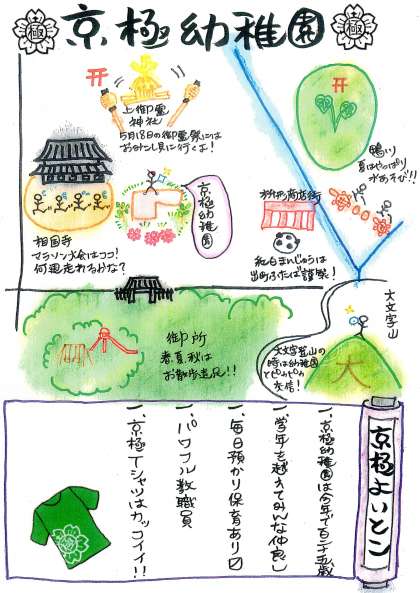 極
京極幼稚園
極
上御霊
神社
5月18日の御霊祭には
おみこし見に行くよ!
鴨川
夏はやっぱり
水あそび!!
相国寺
マラソン大会はココ!
何周走れるかな?
京極幼稚園
桝形商店街
紅白まんじゅうは
出町ふたば謹製!
御所
春夏秋は
お散歩遠足!!
大文字山
大文字登山の
時は幼稚園
とピカピカ
交信!
大
京極よいとこ
一、京極幼稚園は今年で百二十五歳
一、学年を越えてみんな仲良し
一、毎日預かり保育あり〼
一、パワフル教職員
一、京極Tシャツはカッコイイ!!